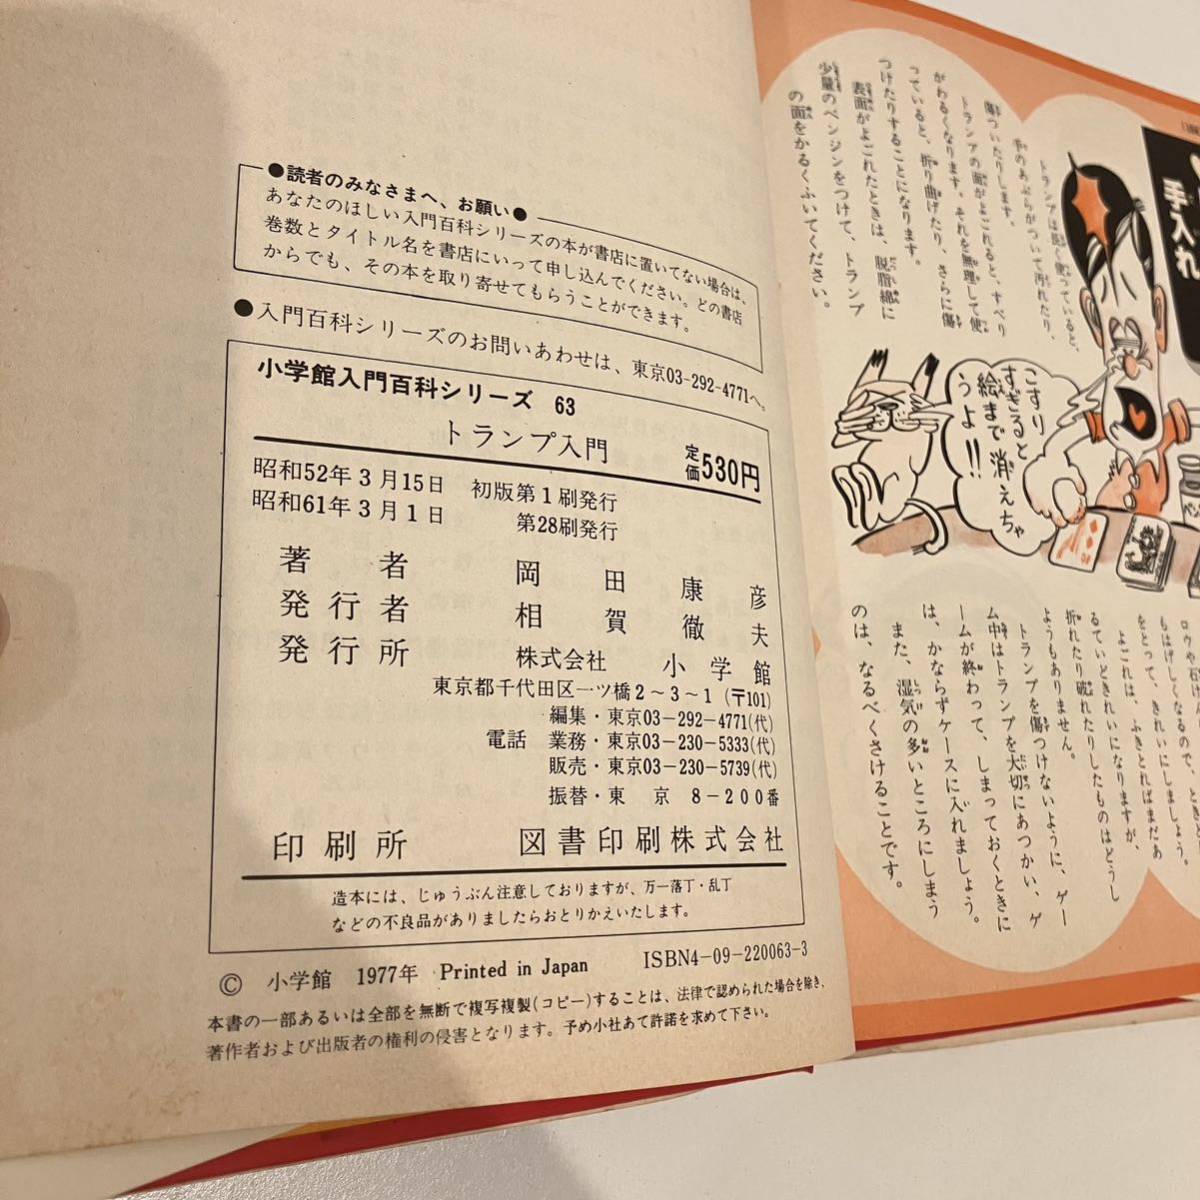 ●読者のみなさまへ、お願い●
あなたのほしい入門百科シリーズの本が書店に置いてない場合は、
巻数とタイトル名を書店にいって申し込んでください。どの書店
からでも、その本を取り寄せてもらうことができます。
●入門百科シリーズのお問いあわせは、東京03-292-4771へ。
小学館入門百科シリーズ 63
トランプ入門 定価530円
昭和52年3月15日 初版第1刷発行
昭和61年3月1日 第28刷発行
著者 岡田康彦
発行者 相賀徹夫
発行所 株式会社 小学館
東京都千代田区一ツ橋2-3-1(〒101)
編集・東京03-292-4771(代)
電話 業務・東京03-230-5333(代)
販売・東京03-230-5739(代)
振替・東京 8-200番
印刷所 図書印刷株式会社
造本には、じゅうぶん注意しておりますが、万一落丁・乱丁
などの不良品がありましたらおとりかえいたします。
© 小学館 1977年 Printed in Japan ISBN4-09-220063-3
本書の一部あるいは全部を無断で複写複製(コピー)することは、法律で認められた場合を除き、
著作者および出版者の権利の侵害となります。予め小社あて許諾を求めて下さい。
手入れ
トランプは長く使っていると、
手のあぶらがついて汚れたり、
傷ついたりします。
トランプの面がよごれると、すべり
がわるくなります。それを無理して使
っていると、折り曲げたり、さらに傷
つけたりすることになります。
表面がよごれたときは、脱脂綿に
少量のベンジンをつけて、トランプ
の面をかるくふいてください。
こすり
すぎると
絵まで消えちゃ
うよ!!
もはげしくなるので、
をとって、きれいにしましょう。
よごれは、ふきとればまだあ
るていどきれいになりますが、
折れたり破れたりしたものはどうし
ようもありません。
トランプを傷つけないように、ゲー
ム中はトランプを大切にあつかい、ゲ
ームが終わって、しまっておくときに
は、かならずケースに入れましょう。
また、湿気の多いところにしまう
のは、なるべくさけることです。